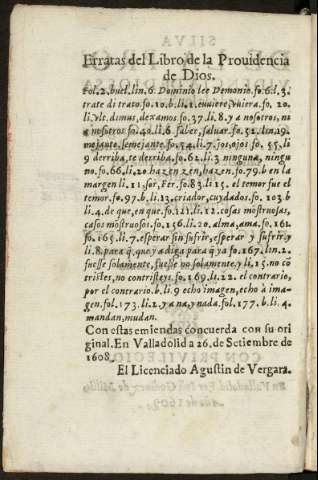 Erratas del Libro de la Prouidencia
de Dios.
Fol. 2. buel. lin. 6. Dominio lee Demonio. fo. 6. l. 3.
trate di trato. fo. 10. b. li. 1. euuiere, vuiera. fo. 20.
li, vlt. dimus, dexamos. fo. 37. li. 8. y a nosotros, ni
a nosotros fo. 40. li. 6. saber, saluar. fo. 51. lin. 19.
mejante, semejante. fo. 54. li. 7. jos, ojos fo. 55. li
9 derriba, te derriba, fo. 62. li. 3 ninguna, ningu
no. fo. 66. li. 10 hazen zen, hazen, fo. 79. b en la
margen li. 11, sor, Fer. fo. 83. li 15. el temor fue el
temor. fo. 97. b. li. 13, criador, cuydados. fo. 103. b
li. 4. de que, en que. fo. 121. li. 12. cosas mostruosas,
casos mostruosos. fo. 156. li. 20. alma, ama. fo. 161.
fo. 165. li. 7. esperar sin sufrir, esperar y sufrir. y
li. 8. para q̃, que ya diga para q̃ ya fo. 167. lin. 2.
fuesse solamente, fuesse no solamente. y li. 15. no cõ
tristes, no contristeys. fo. 169. li. 22. el contrario,
por el contrario. b li. 9 echo imagen, echo à ima-
gen. fol. 173. li. 2. ya na, y nada. fol. 177. b. li. 4.
mandan, mudan.
Con estas emiendas concuerda con su ori
ginal. En Valladolid a 26. de Setiembre de
1608.
El Licenciado Agustin de Vergara.